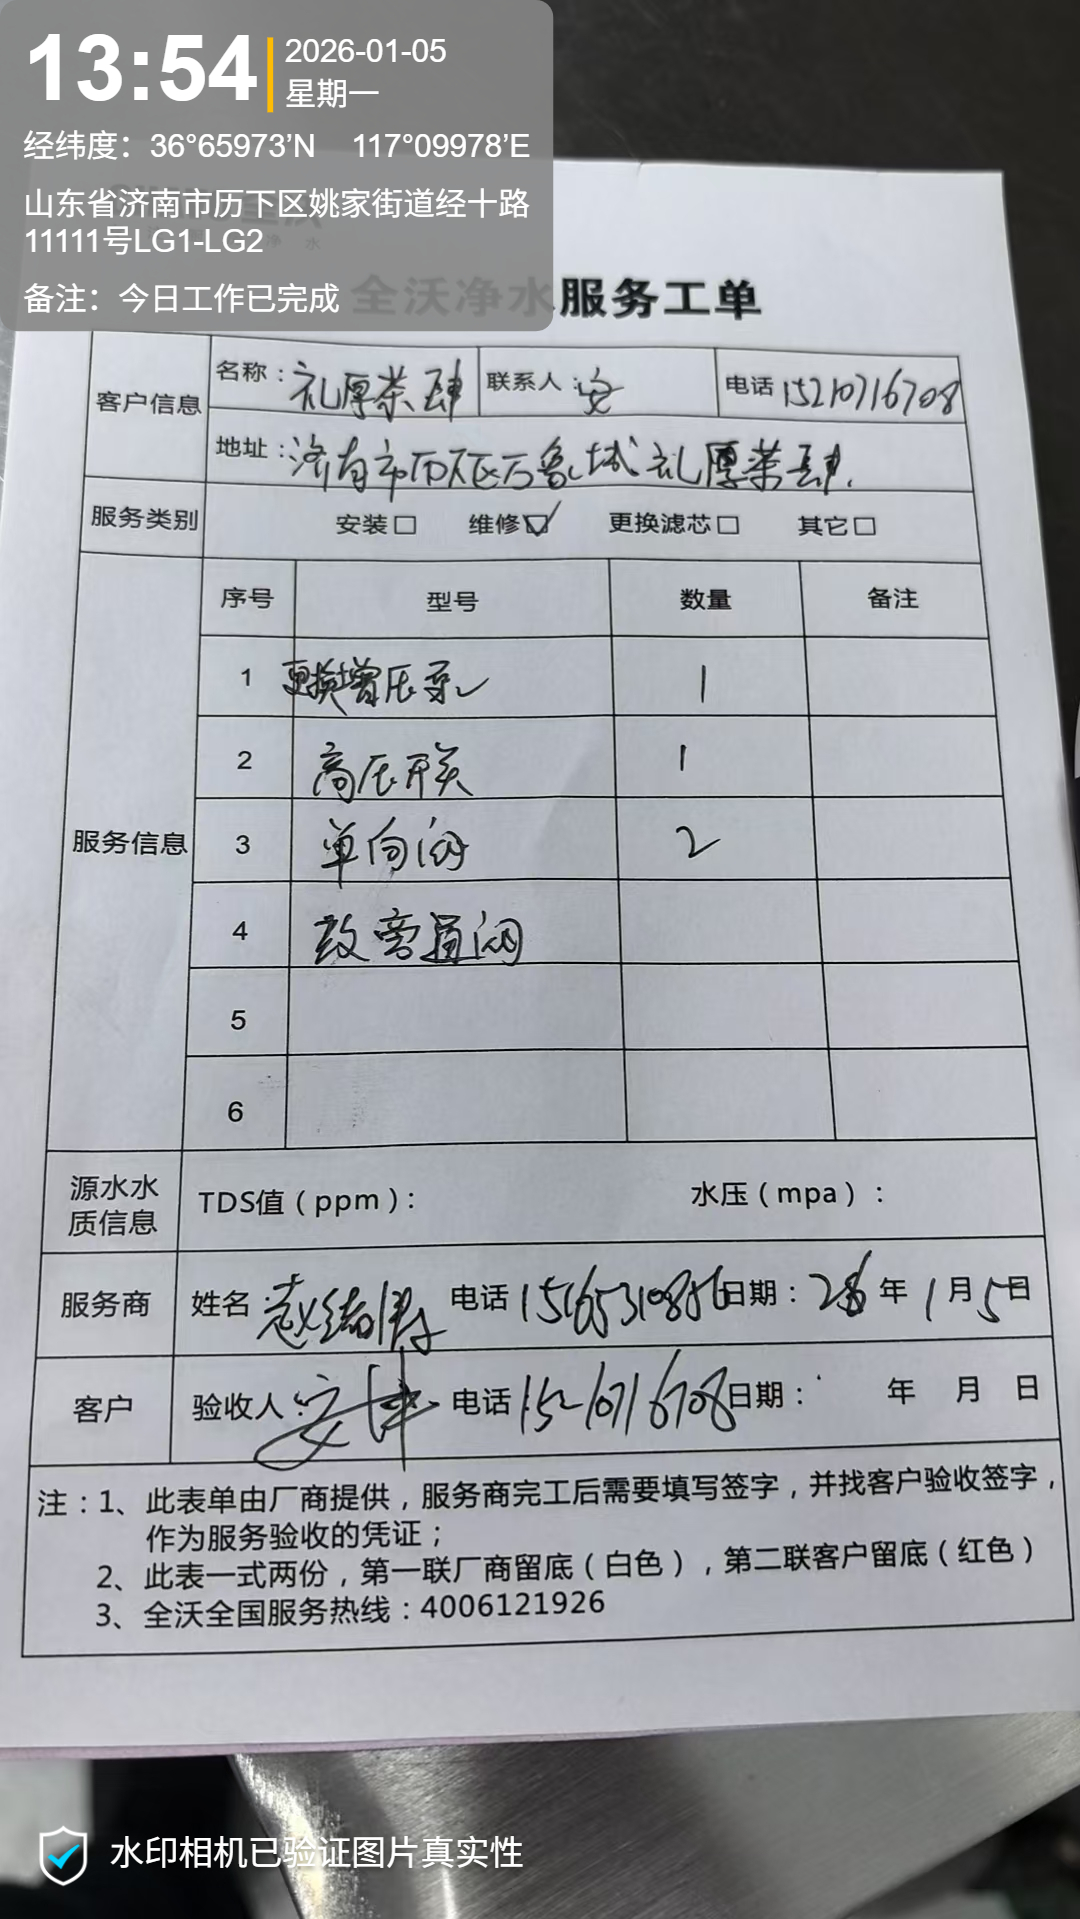 13:54
2026-01-05
星期一
经纬度：36°65973’N 117°09978’E
山东省济南市历下区姚家街道经十路
11111号LG1-LG2
备注：今日工作已完成
全沃净水服务工单
客户信息 名称：礼厚茶肆 联系人：安 电话 15210716708
地址：济南市历下区万象城礼厚茶肆.
服务类别 安装□ 维修☑ 更换滤芯□ 其它□
服务信息
序号 型号 数量 备注
1 更换增压泵 1
2 高压开关 1
3 单向阀 2
4 改旁通阀
5
6
源水水质信息 TDS值（ppm）： 水压（mpa）：
服务商 姓名 赵绪 电话 15165310856 日期：26年1月5日
客户 验收人：安 电话 15210716708 日期： 年 月 日
注：1、此表单由厂商提供，服务商完工后需要填写签字，并找客户验收签字，
作为服务验收的凭证；
2、此表一式两份，第一联厂商留底（白色），第二联客户留底（红色）
3、全沃全国服务热线：4006121926
水印相机已验证图片真实性